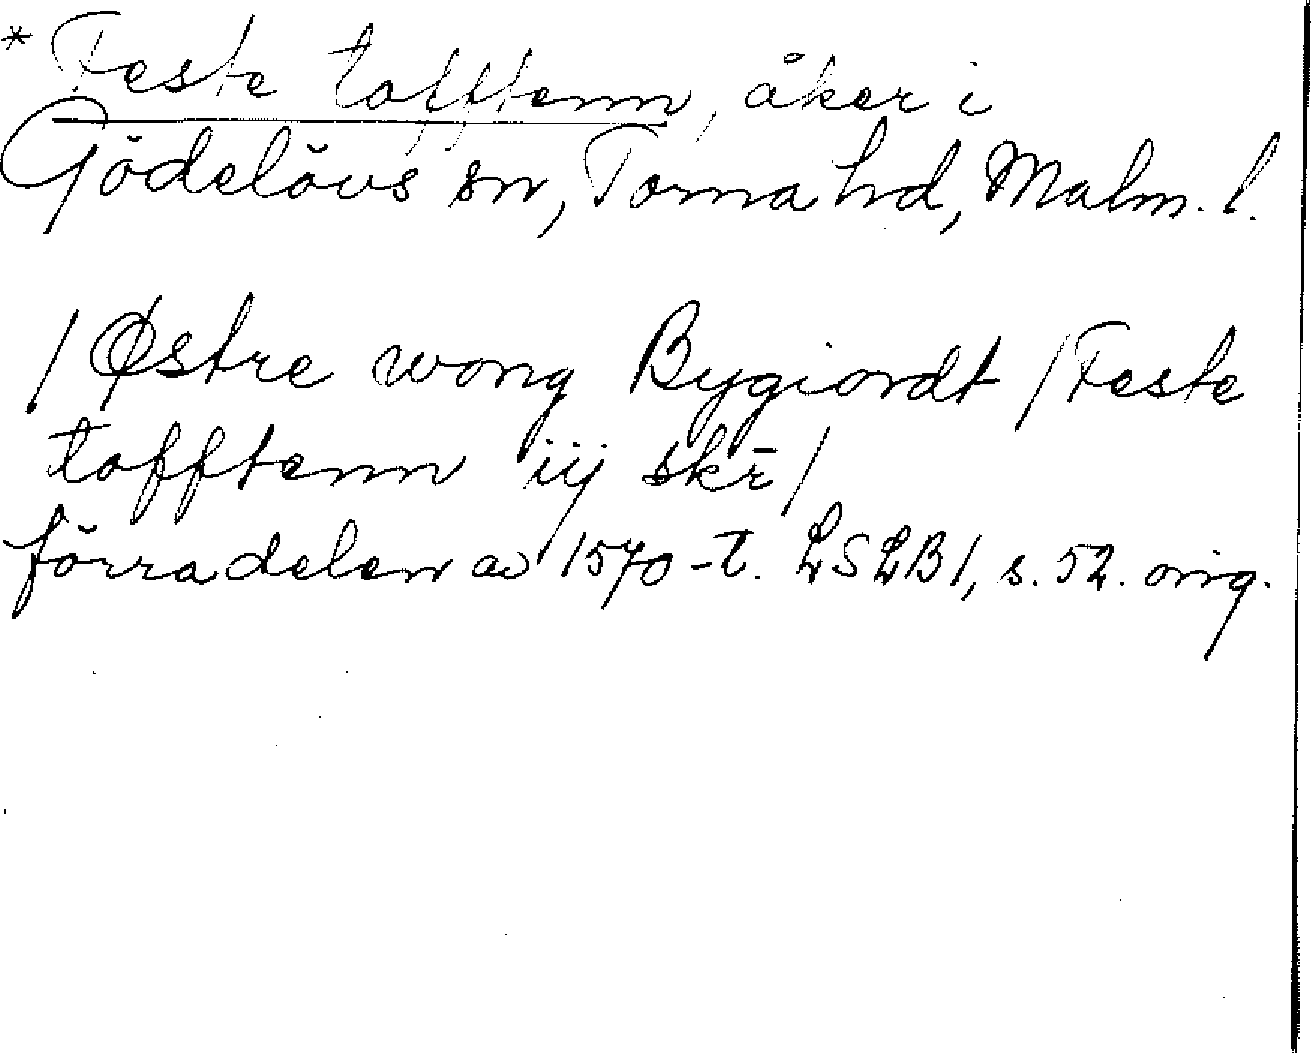 * Feste tofftenn, åker i
Gödelövs sn, Torna hd, Malm. l.
/ Østre wong Bygiordt / Feste
tofftenn iij skr̄ /
förra delen av 1570-t. LSLB 1, s. 52. orig.